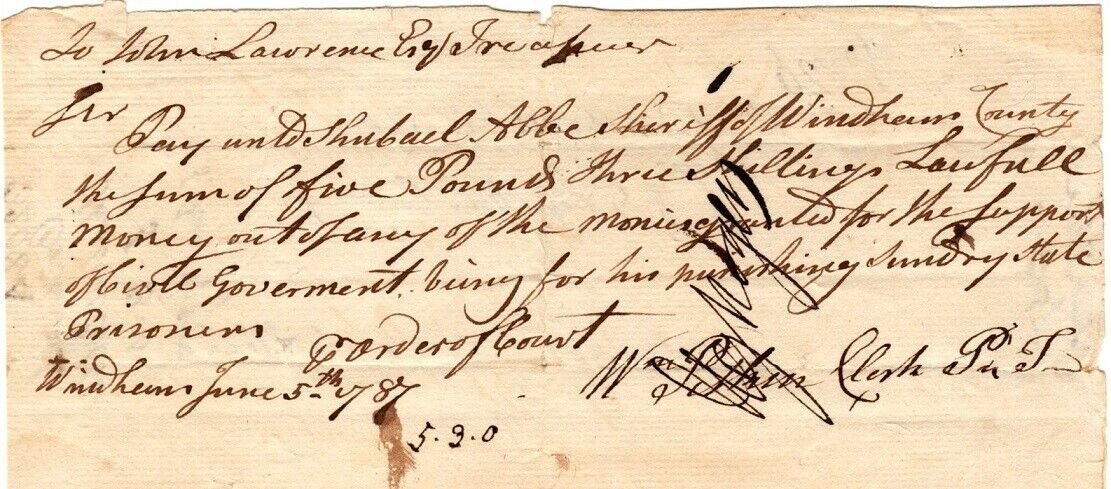 To John Lawrence Esqr Treasurer
Sir
Pay unto Shubael Abbe Sheriff of Windham County
the sum of five Pounds three Shillings Lawfull
Money out of any of the monies granted for the support
of Civill Goverment being for his punishing Sundry State
Prisoners
pr Order of Court
Windham June 5th 1787
Wm Clerk
5. 3. 0